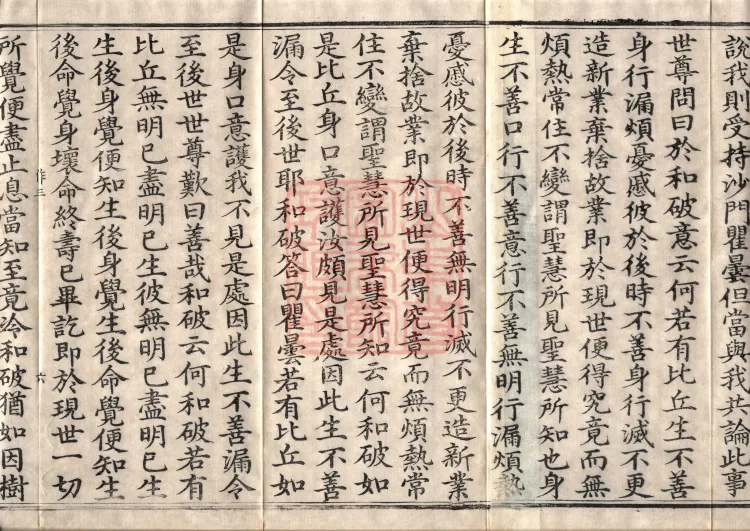 說我則受持沙門瞿曇但當與我共論此事
世尊問曰於和破意云何若有比丘生不善
身行漏煩憂慼彼於後時不善身行滅不更
造新業棄捨故業即於現世便得究竟而無
煩熱常住不變謂聖慧所見聖慧所知也身
生不善口行不善意行不善無明行漏煩熱
憂慼彼於後時不善無明行滅不更造新業
棄捨故業即於現世便得究竟而無煩熱常
住不變謂聖慧所見聖慧所知云何和破如
是比丘身口意護汝頗見是處因此生不善
漏令至後世耶和破答曰瞿曇若有比丘如
是身口意護我不見是處因此生不善漏令
至後世世尊歎曰善哉和破云何和破若有
比丘無明已盡明已生彼無明已盡明已生
生後身覺便知生後身覺生後命覺便知生
後命覺身壞命終壽已畢訖即於現世一切
所覺便盡止息當知至竟冷和破猶如因樹
六